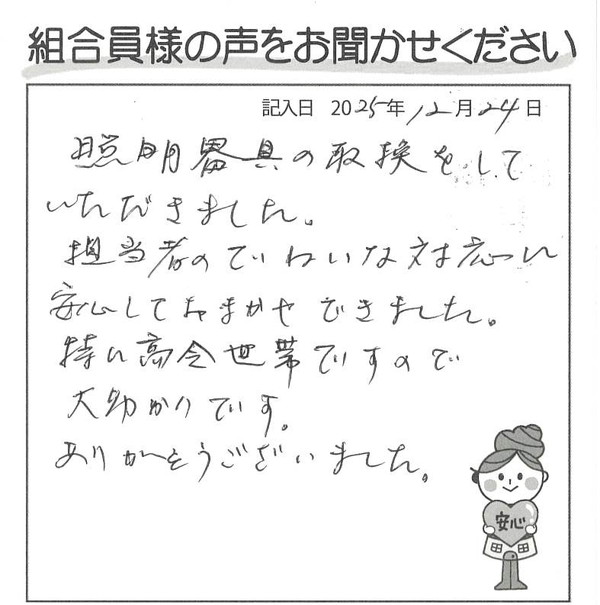 組合員様の声をお聞かせください
記入日 2025年 12月 24日
照明器具の取換をして
いただきました。
担当者のていねいな対応に
安心しておまかせできました。
特に高令世帯ですので
大助かりです。
ありがとうございました。
安心